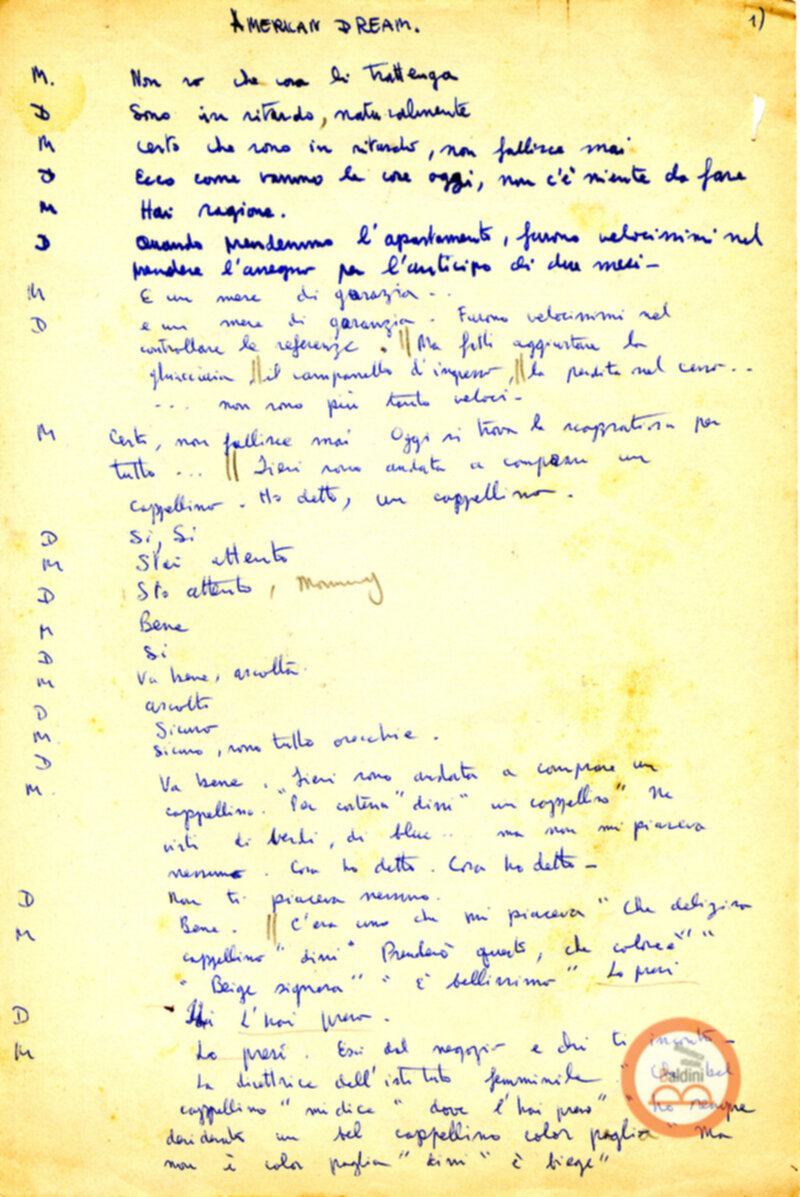 AMERICAN DREAM. 1)
M. Non so che cosa li trattenga
D Sono in ritardo, naturalmente
M Certo che sono in ritardo, non fallisce mai
D Ecco come vanno le cose oggi, non c'è niente da fare
M Hai ragione.
D Quando prendemmo l'apartamento, furono velocissimi nel
prendere l'assegno per l'anticipo di due mesi -
M E un mese di garazia - ..
D e un mese di garanzia. Furono velocissimi nel
controllare le referenze. || Ma fatti aggiustare la
ghiacciaia || il campanello d'ingresso, || la perdita nel cesso - ..
... non sono più tanto veloci -
M Certo, non fallisce mai Oggi si trova la per
tutto ... || Iieri sono andata a comprare un
cappellino. Ho detto, un cappellino.
D Si, Si
M Stai attento
D Sto attento, Mommy
M Bene
D Si
M Va bene, ascolta.
D ascolto
M Sicuro
D sicuro, sono tutto orecchie.
M. Va bene. "Iieri sono andata a comprare un
cappellino. "Per cortesia" dissi "un cappellino" Ne
visti di verdi, di blue .. ma non mi piaceva
nessuno. Cosa ho detto. Cosa ho detto -
D Non ti piaceva nessuno.
M Bene. || C'era uno che mi piaceva "Che delizioso
cappellino" dissi "Prenderò questo, che colore è" "
"Beige signora" "È bellissimo" Lo presi
D L'hai preso.
M Lo presi. Esci dal negozio e chi ti incontro -
La direttrice dell'istituto femminile "Che bel
cappellino" mi dice "dove l'hai preso" "ho sempre
desiderato un bel cappellino color paglia" Ma
non è color paglia" dissi "è biege"
Baldini